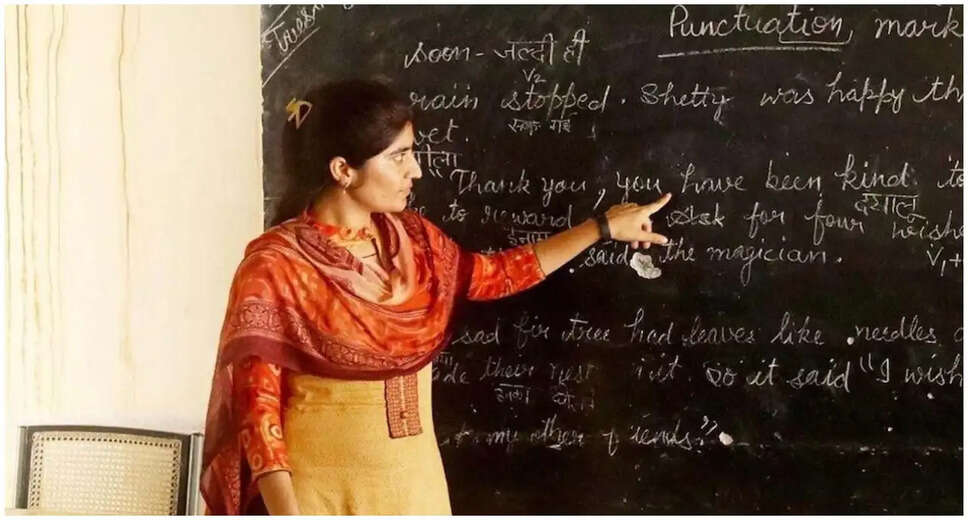 Tues
Punctuation mark
soon - जल्दी ही
V2
rain stopped. Shetty was happy th
रुक गई
wet.
गीला
"Thank you, you have been kind to
दयालु
to reward Ask for four wishe
इनाम
said the magician. V1+
sad fir tree had leaves like needles
their nest it. So it said "I wish
my other friends."